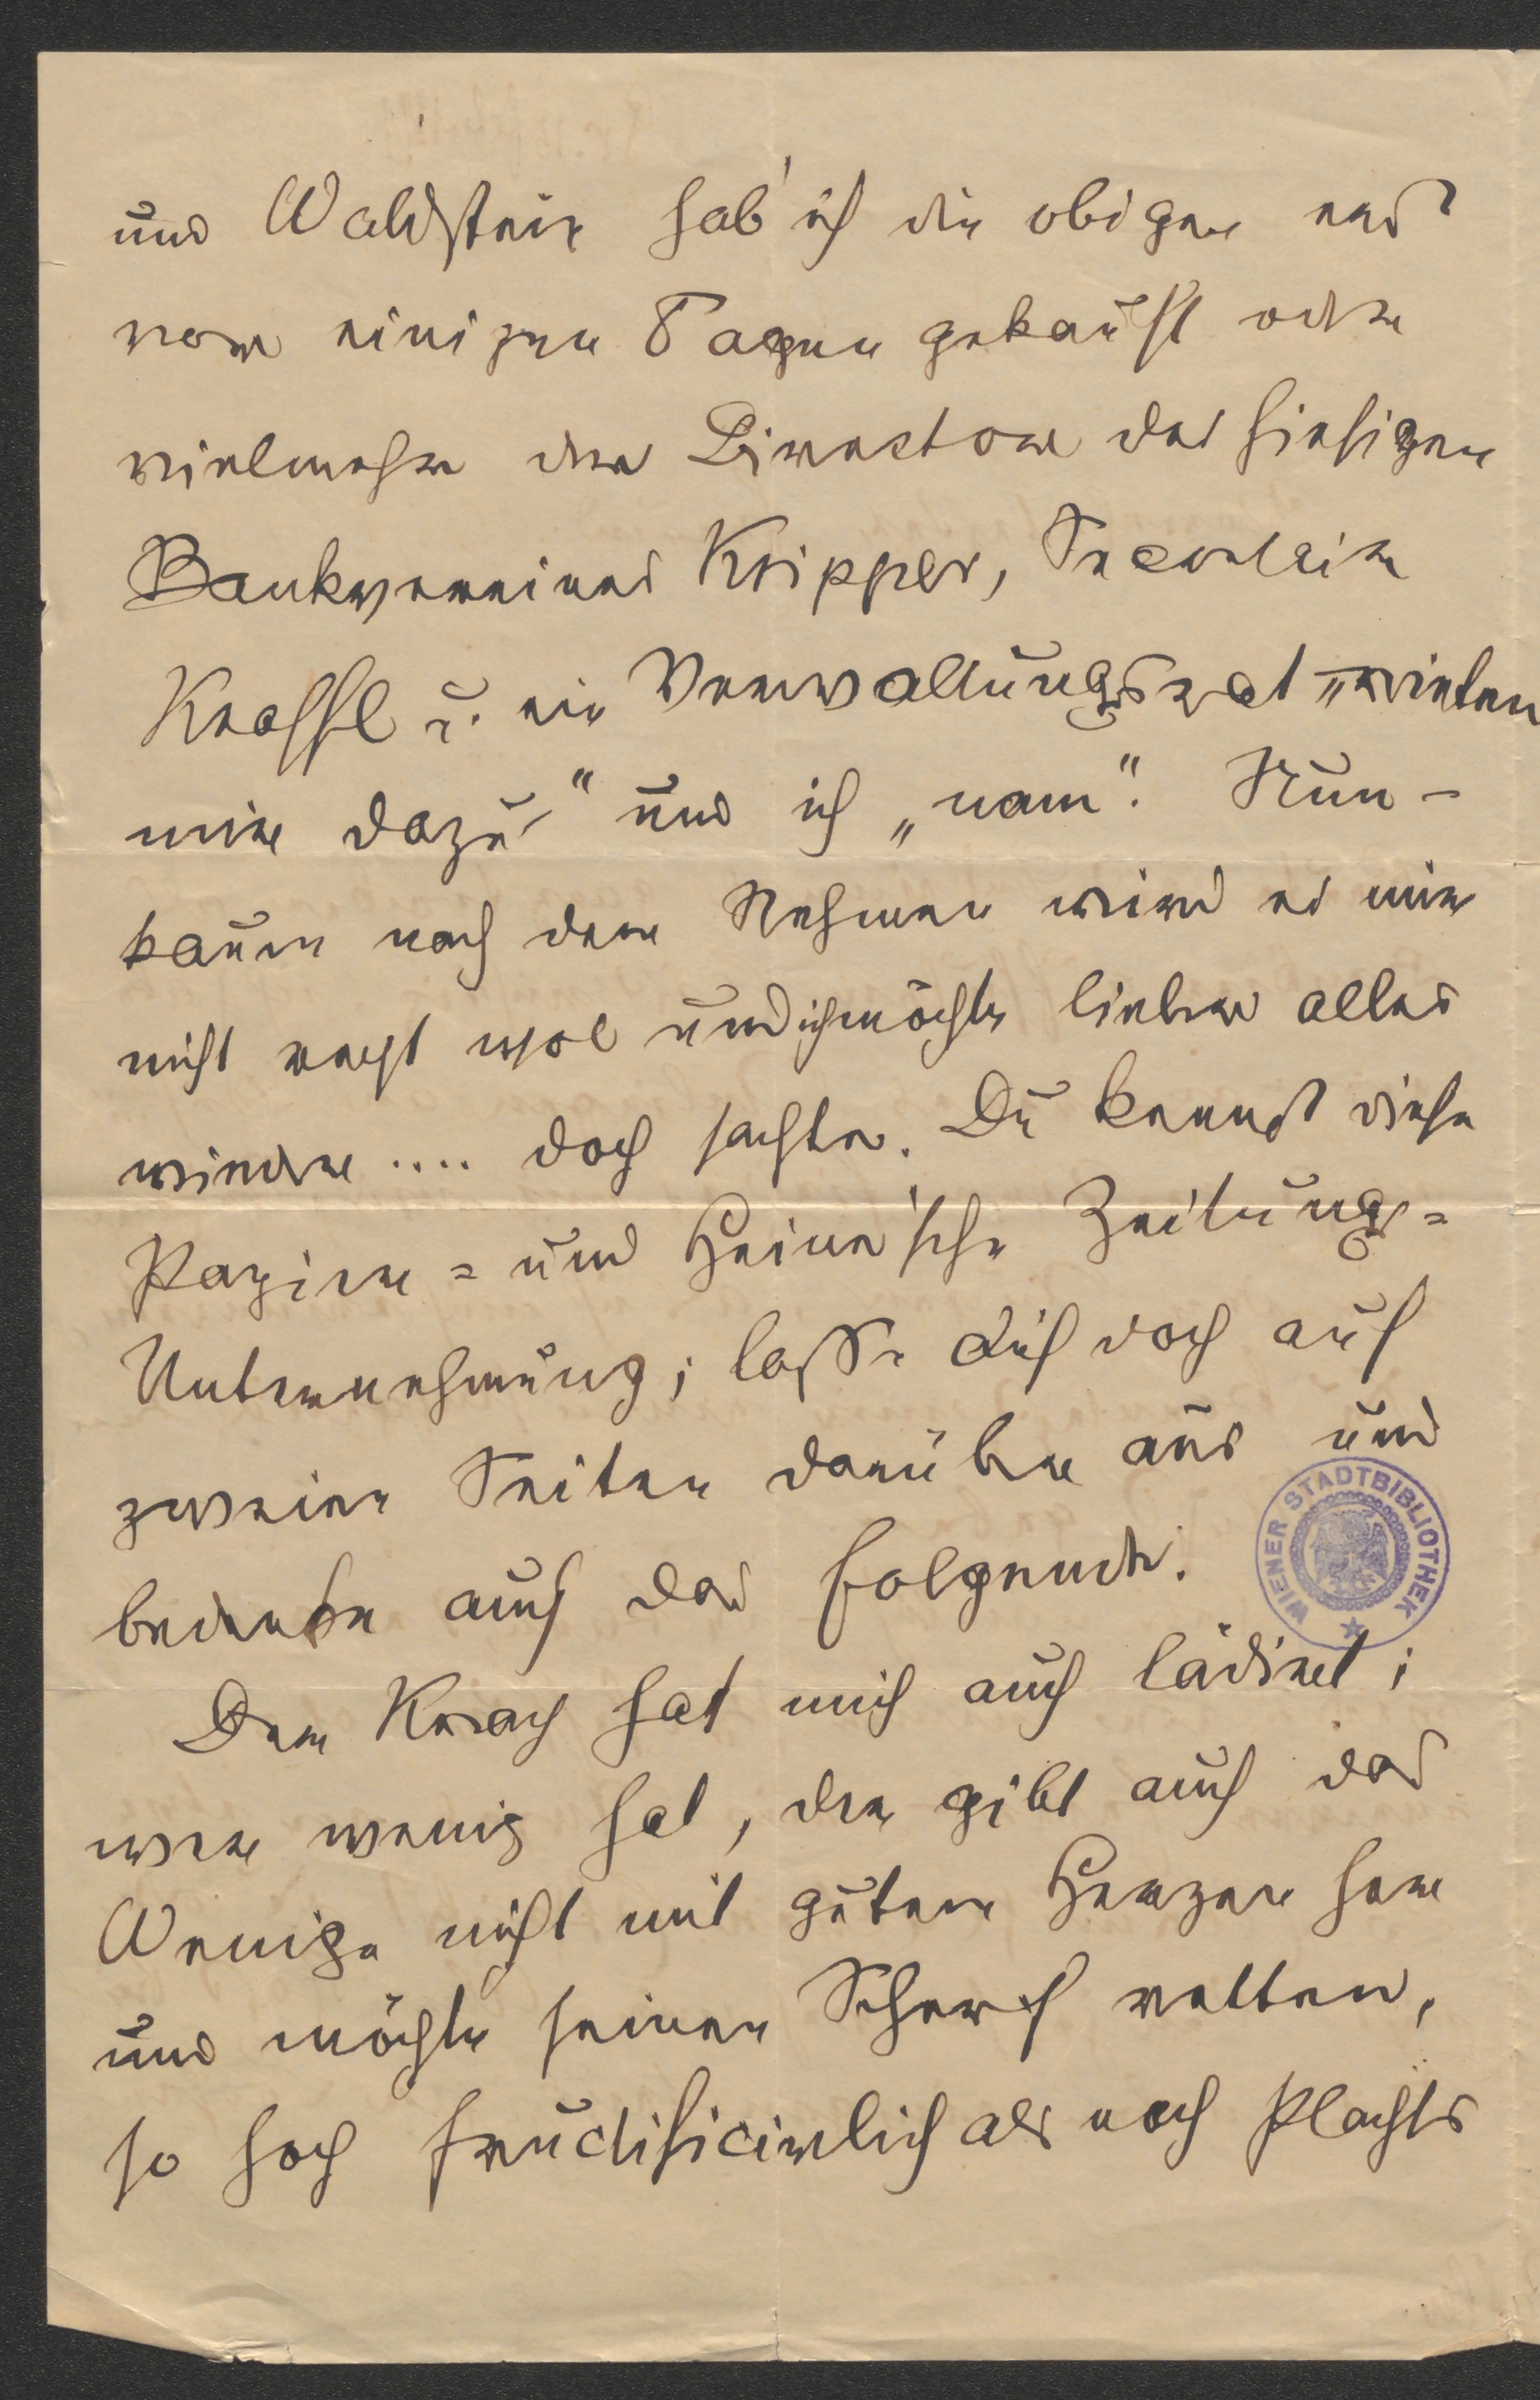 und Waldstein hab' ich die obigen erst
vor einigen Tagen gekauft oder
vielmehr der Director des hiesigen
Bankvereines Knipper, Secretair
Krassl u. ein Verwaltungsrat „rieten
mir dazu" und ich „nam". Nun –
kaum nach dem Nehmen wird es mir
nicht recht wol und ich möchte lieber alles
wieder .... doch sachte. Du kennst diese
Papier = und Heine'sche Zeitungs =
Unternehmung; lasse dich doch auf
zweien Seiten darüber aus und
bedenke auch das folgende.
Der Krach hat mich auch lädirt;
wer wenig hat, der gibt auch das
Wenige nicht mit gutem Herzen her
und möchte seinen Scherf retten,
so hoch fructificirlich als nach Plachts
WIENER STADTBIBLIOTHEK